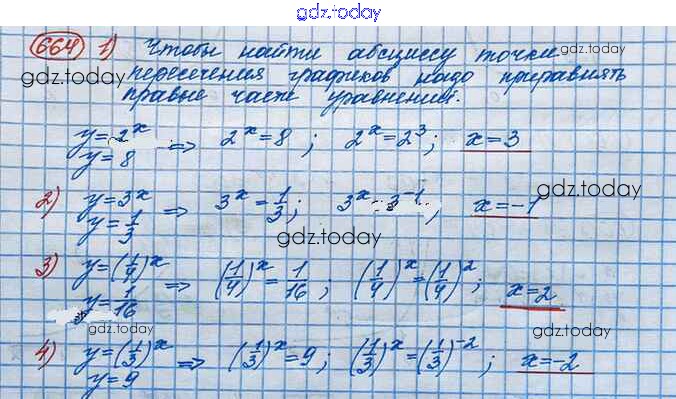 gdz.today
664 1) Чтобы найти абсциссу точки
gdz.today
пересечения графиков надо приравнять
правые части уравнений.
y=2^x
y=8 => 2^x=8; 2^x=2^3; x=3
gdz.today
2) y=3^x
y=1/3 => 3^x=1/3; 3^x 3^-1; x=-1
gdz.today
3) y=(1/4)^x
y=1/16 => (1/4)^x=1/16; (1/4)^x=(1/4)^2; x=2
gdz.today
gdz.today
4) y=(1/3)^x
y=9 => (1/3)^x=9; (1/3)^x=(1/3)^-2; x=-2